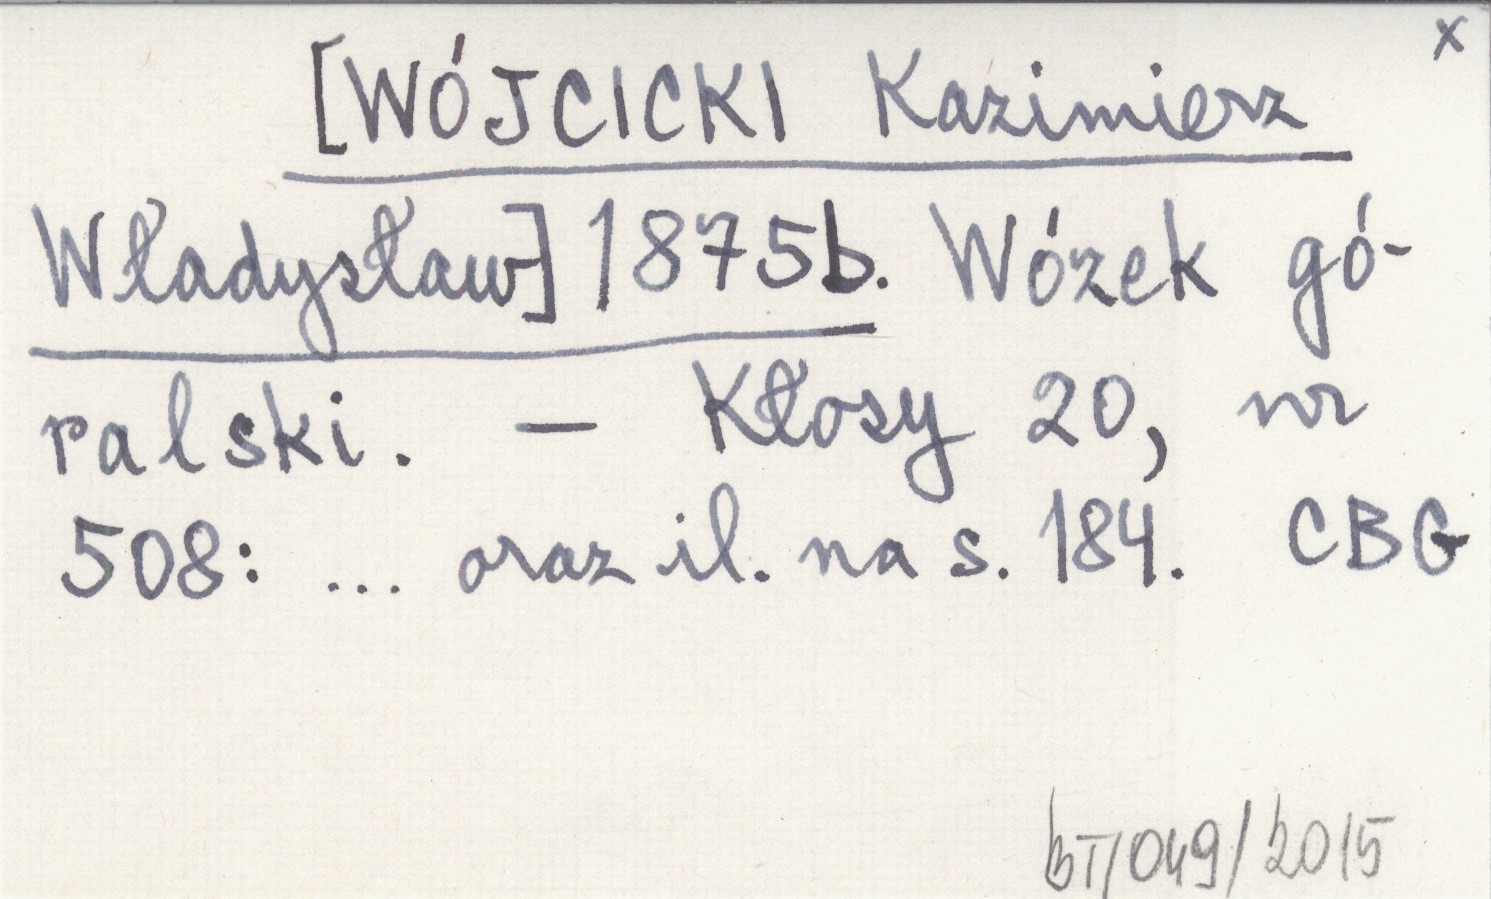 x
[WÓJCICKI Kazimierz
Władysław] 1875b. Wózek gó-
ralski. — Kłosy 20, nr
508: ... oraz il. na s. 184. CBG
BT/049/2015